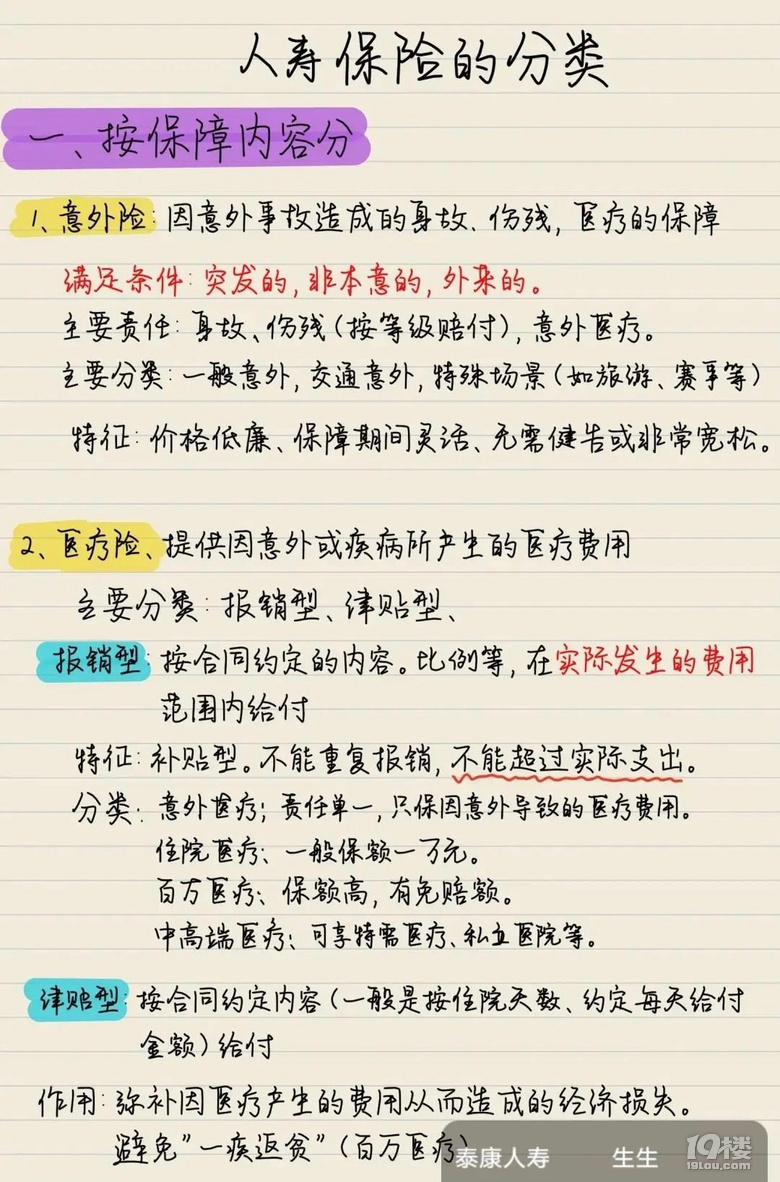 人寿保险的分类
一、按保障内容分
1、意外险:因意外事故造成的身故、伤残,医疗的保障
满足条件:突发的,非本意的,外来的。
主要责任:身故、伤残(按等级赔付),意外医疗。
主要分类:一般意外,交通意外,特殊场景(如旅游、赛事等)
特征:价格低廉、保障期间灵活、无需健告或非常宽松。
2、医疗险、提供因意外或疾病所产生的医疗费用
主要分类:报销型、津贴型、
报销型:按合同约定的内容。比例等,在实际发生的费用
范围内给付
特征:补贴型。不能重复报销,不能超过实际支出。
分类:意外医疗;责任单一,只保因意外导致的医疗费用。
住院医疗;一般保额一万元。
百万医疗;保额高,有免赔额。
中高端医疗;可享特需医疗、私立医院等。
津贴型:按合同约定内容(一般是按住院天数、约定每天给付
金额)给付
作用:弥补因医疗产生的费用从而造成的经济损失。
避免"一疾返贫"(百万医疗)
泰康人寿 生生
19楼
19lou.com